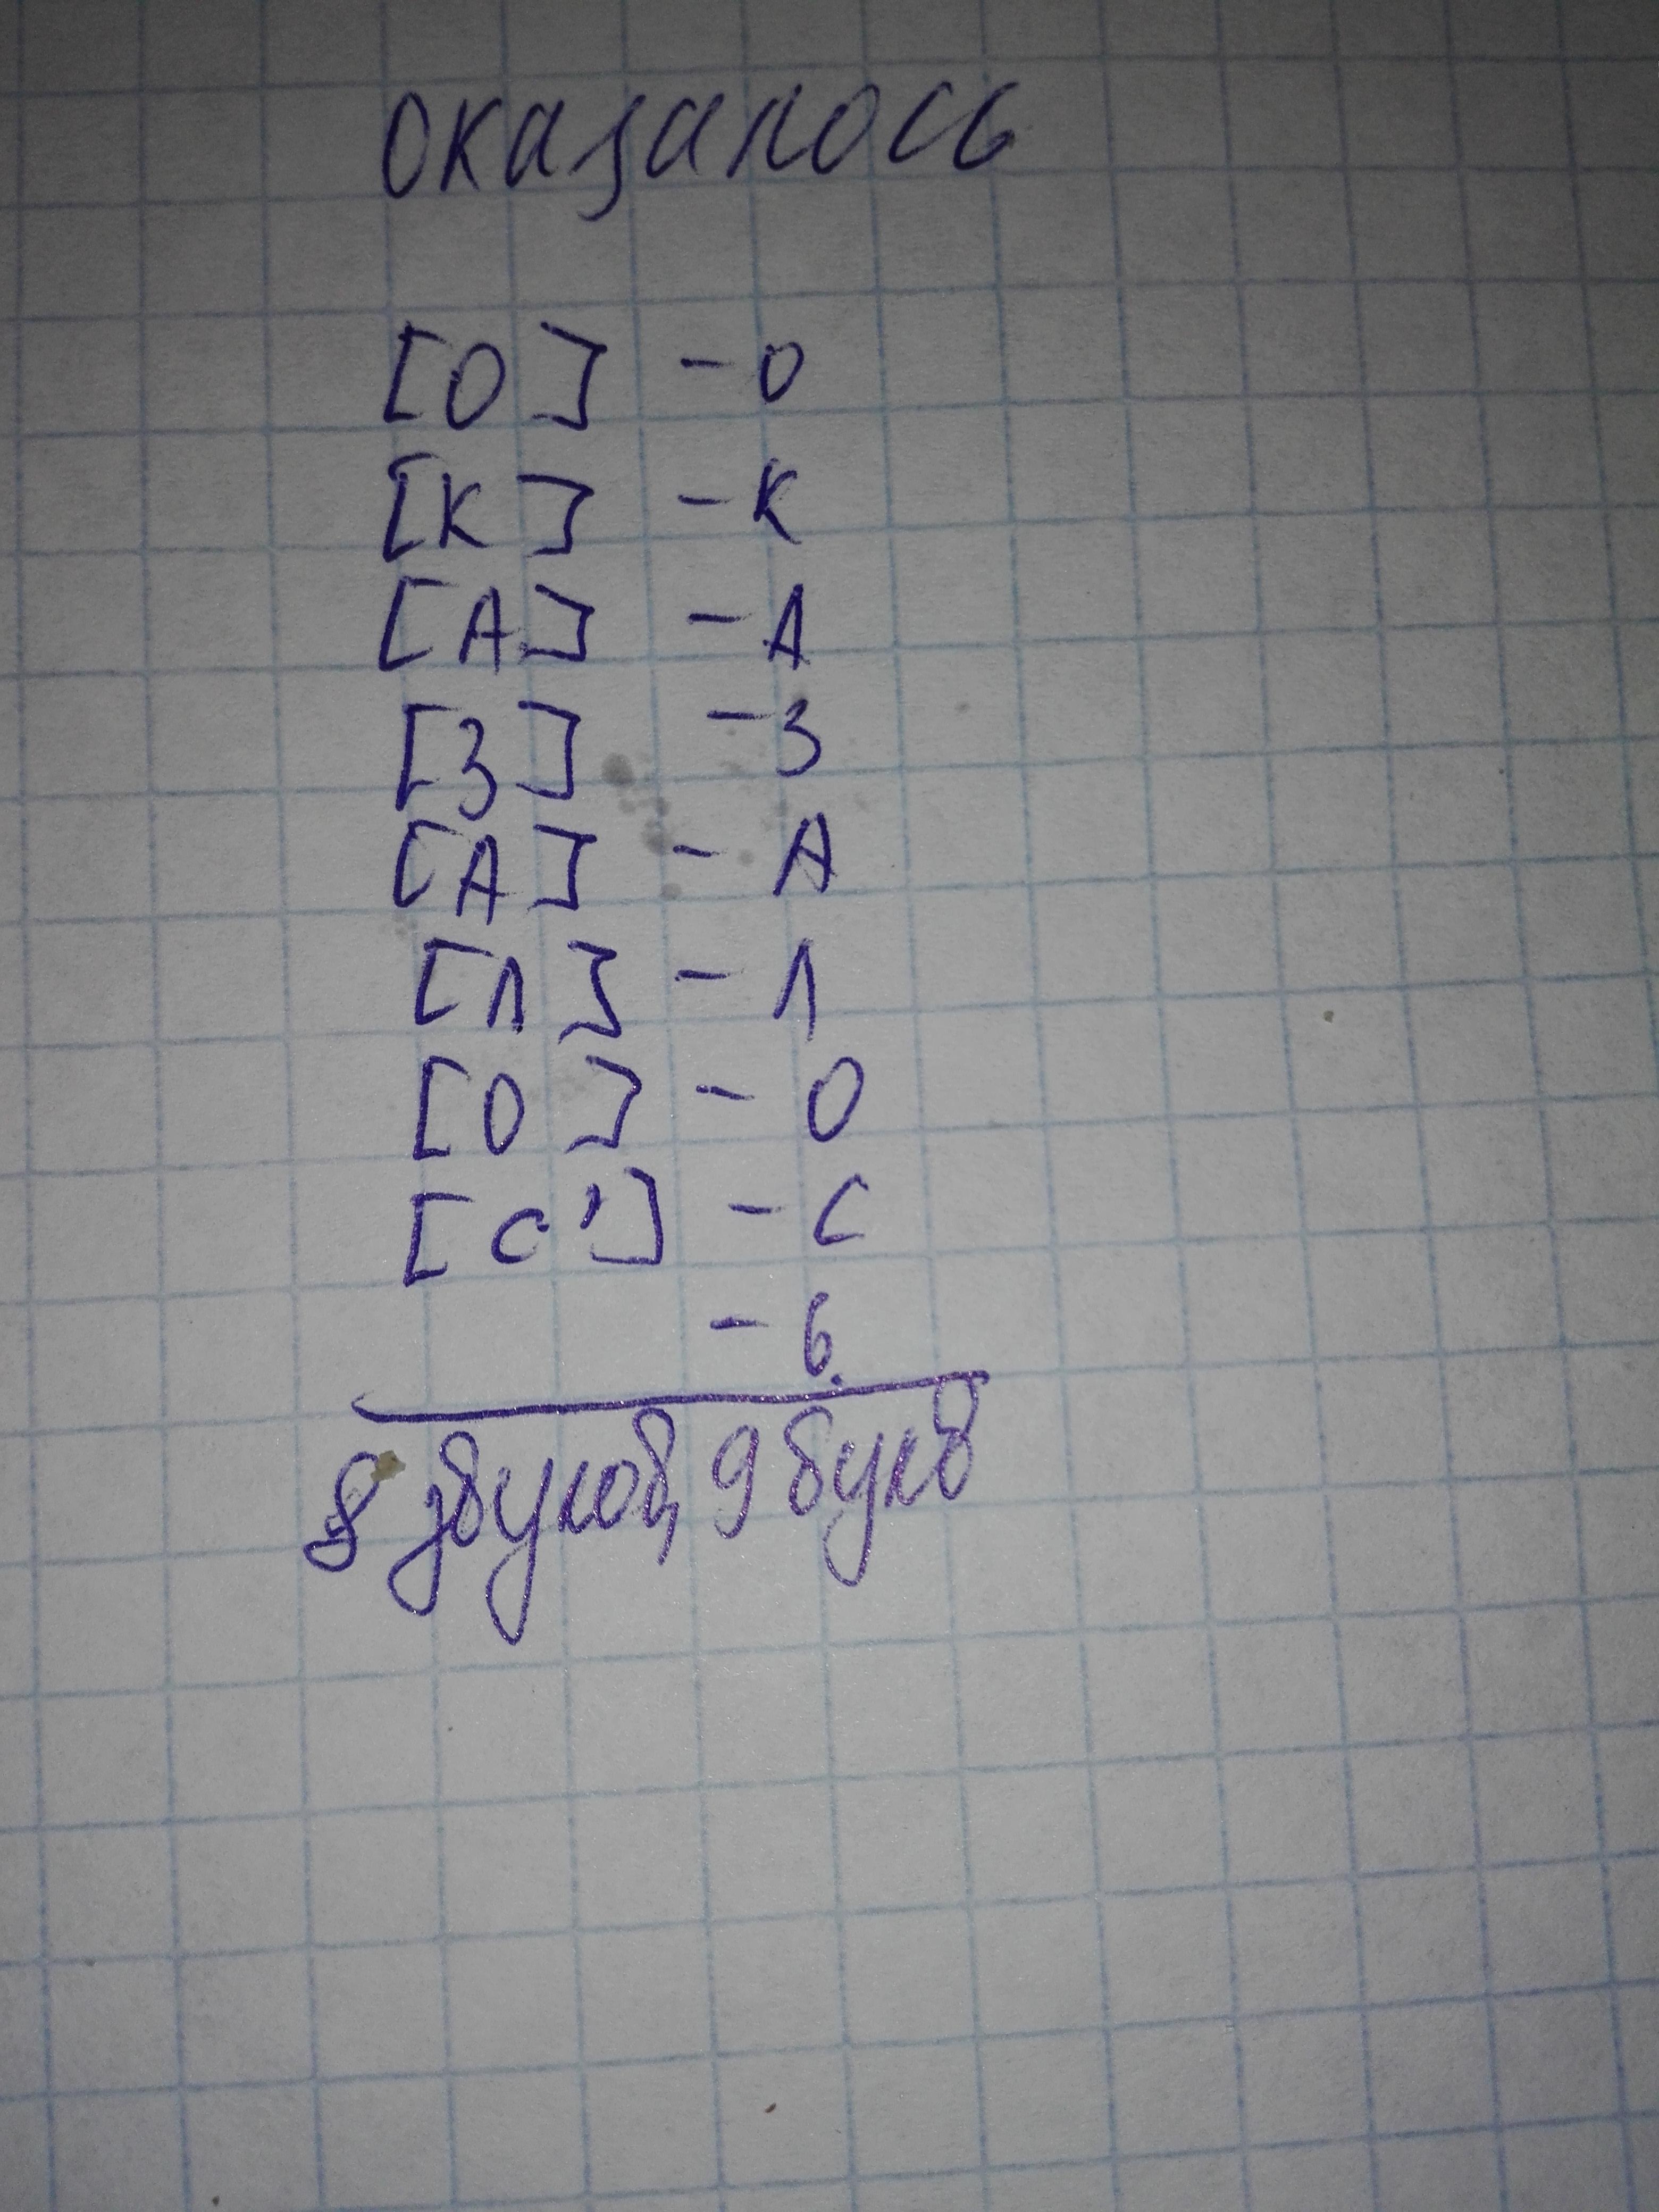 оказалось
[О] - О
[К] - К
[А] - А
[З] - З
[А] - А
[Л] - Л
[О] - О
[С'] - С
- Ь
8 звуков, 9 букв